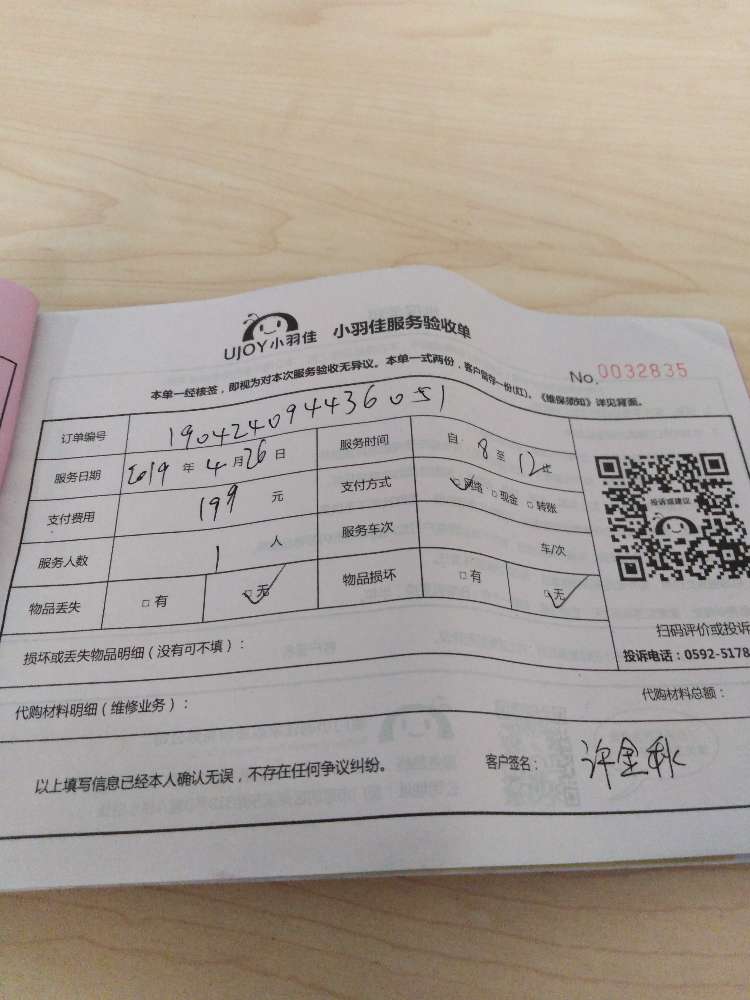 UJOY小羽佳 小羽佳服务验收单
本单一经核签，即视为对本次服务验收无异议。本单一式两份，客户留存一份(红)。《维保须知》详见背面。
No.0032835
订单编号 190424094436051
服务日期 2019 年 4 月 26 日 服务时间 自 8 至 12 止
支付费用 199 元 支付方式 □网络 □现金 □转账
服务人数 1 人 服务车次 车/次
物品丢失 □有 □无 物品损坏 □有 □无
投诉或建议
扫码评价或投诉
投诉电话：0592-5178
损坏或丢失物品明细（没有可不填）：
代购材料明细（维修业务）： 代购材料总额：
以上填写信息已经本人确认无误，不存在任何争议纠纷。 客户签名： 许金秋